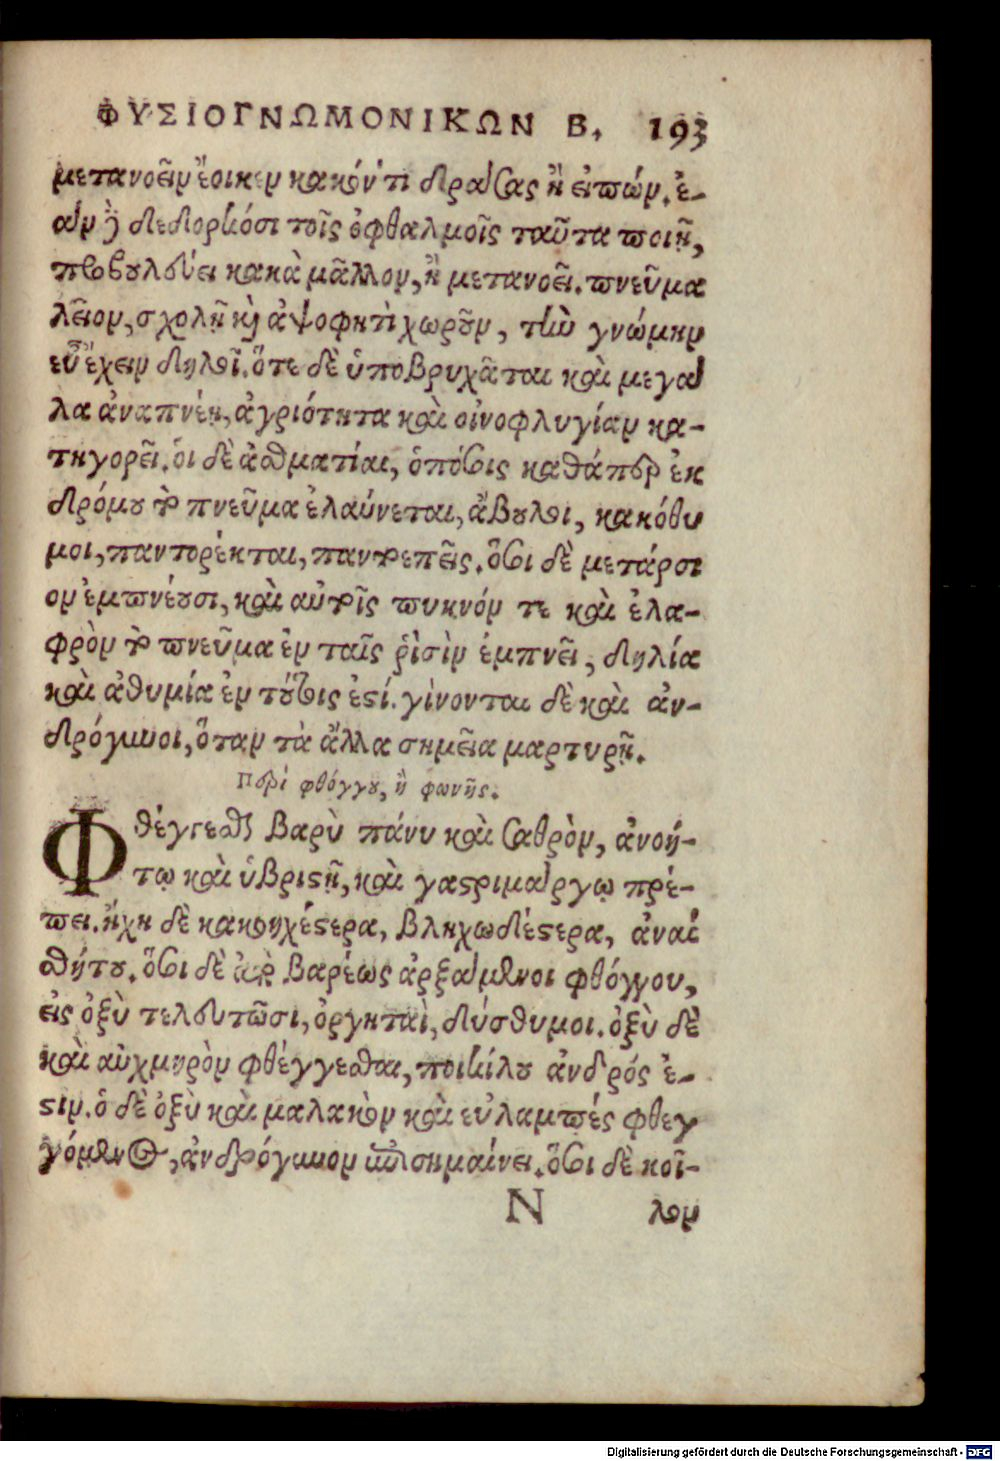 ΦΥΣΙΟΓΝΩΜΟΝΙΚΩΝ Β. 193
μετανοεῖν ἔοικεν κακόν τι δράσας ἢ εἰπών. ἐ-
ὰν δὲ δεδορκόσι τοῖς ὀφθαλμοῖς ταῦτα ποιῇ,
προβουλεύει κακὰ μᾶλλον, ἢ μετανοεῖ. πνεῦμα
λεῖον, σχολῇ καὶ ἀψοφητὶ χωροῦν, τὴν γνώμην
εὖ ἔχειν δηλοῖ. ὅτε δὲ ὑποβρυχᾶται καὶ μεγά
λα ἀναπνέῃ, ἀγριότητα καὶ οἰνοφλυγίαν κα-
τηγορεῖ. οἱ δὲ ἀσθματίαι, ὁπόσοις καθάπερ ἐκ
δρόμου τὸ πνεῦμα ἐλαύνεται, ἄβουλοι, κακόθυ
μοι, παντορέκται, παντοεπεῖς. ὅσοι δὲ μετάρσι
ον ἐμπνέουσι, καὶ αὐτοῖς πυκνόν τε καὶ ἐλα-
φρὸν τὸ πνεῦμα ἐν ταῖς ῥισὶν ἐμπνεῖ, δηλία
καὶ ἀθυμία ἐν τούτοις ἐστί. γίνονται δὲ καὶ ἀν-
δρόγυνοι, ὅταν τὰ ἄλλα σημεῖα μαρτυρῇ.
Περὶ φθόγγου, ἢ φωνῆς.
Φθέγγεσθαι βαρὺ πάνυ καὶ σαθρὸν, ἀνοή-
τῳ καὶ ὑβριστῇ, καὶ γαστριμάργῳ πρέ-
πει. ἤχη δὲ κακοηχέστερα, βληχωδέστερα, ἀναι
σθήτου. ὅσοι δὲ ἀπὸ βαρέως ἀρξάμενοι φθόγγου,
εἰς ὀξὺ τελευτῶσι, ὀργηταὶ, δύσθυμοι. ὀξὺ δὲ
καὶ αὐχμηρὸν φθέγγεσθαι, ποικίλου ἀνδρός ἐ-
στιν. ὁ δὲ ὀξὺ καὶ μαλακὸν καὶ εὐλαμπές φθεγ
γόμενος, ἀνδρόγυνον ἐπισημαίνει. ὅσοι δὲ κοῖ-
N λον
Digitalisierung gefördert durch die Deutsche Forschungsgemeinschaft - DFG